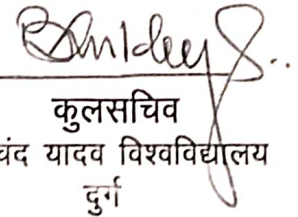 कुलसचिव
चंद यादव विश्वविद्यालय
दुर्ग